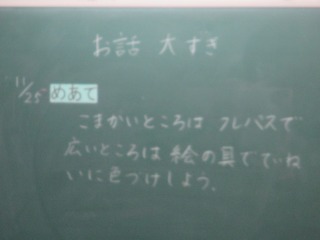 お話 大すき
11/25 めあて
こまかいところは クレパスで
広いところは 絵の具でていね
いに色づけしよう。